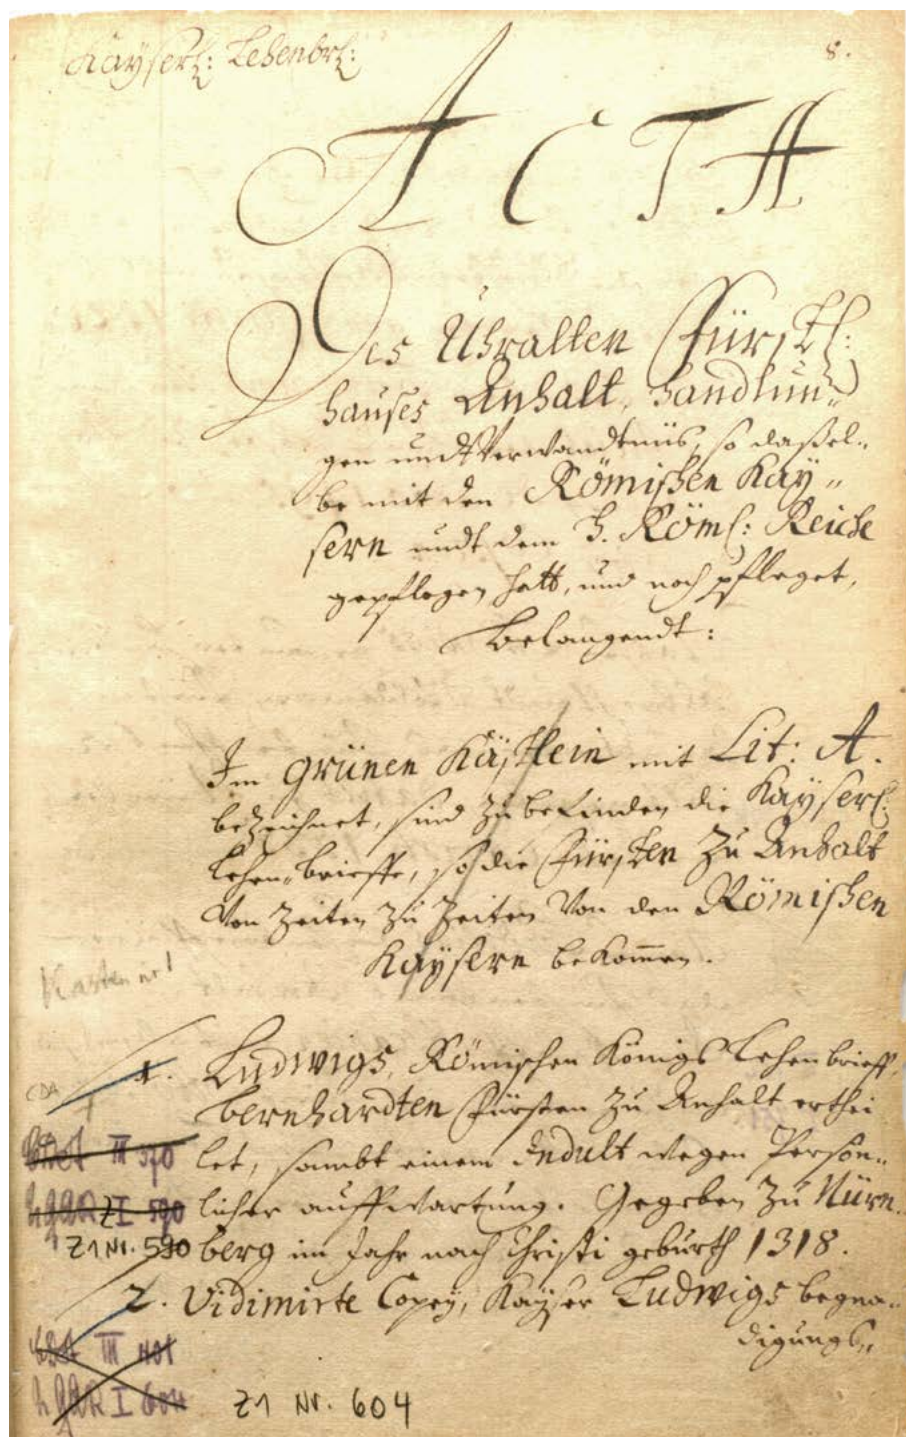 Kayserl: Lehenbrf:
8.
ACTA
Des Uhralten Fürstl:
Hauses Anhalt, Handlun„
gen undt Verwandtnüs, so daßel„
be mit den Römischen Kay„
sern undt dem H. Röml: Reiche
gepflogen hatt, und noch pfleget,
Belangendt:
Im grünen Kästlein mit Lit: A.
bezeichnet, sind zu befinden die Kayserl:
Lehen„brieffe, so die Fürsten zu Anhalt
Von Zeiten zu Zeiten Von den Römischen
Kaysern bekom̅en.
Kasten nr 1
1. Ludwigs, Römischen Königs Lehenbrieff,
CDA
Bernhardten Fürsten zu Anhalt erthei
III 370
let, sambt einem Indult wegen Person„
I 590
licher auffwartung. Gegeben zu Nürn„
Z1 Nr. 590
berg im Jahr nach Christi geburth 1318.
2. Vidimirte Copey, Kayser Ludwigs begna„
digungs„
CDA III 401
I 604
Z1 Nr. 604